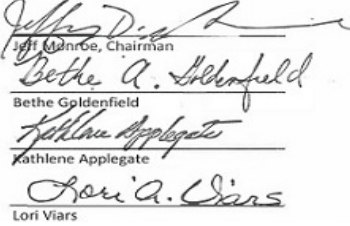 Jeff Monroe, Chairman
Bethe A. Goldenfield
Bethe Goldenfield
Kathlene Applegate
Kathlene Applegate
Lori A. Viars
Lori Viars